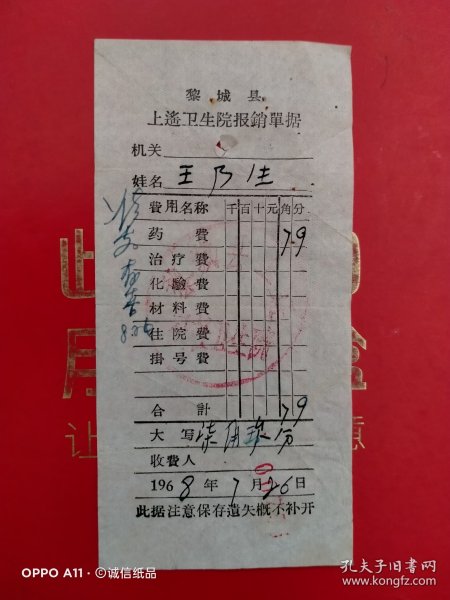 黎城县
上遥卫生院报銷單据
机关
姓名 王乃生
費用名称 千百十元角分
药費 79
治疗費
化驗費
材料費
住院費
掛号費
合計 79
大写 柒角玖分
收費人
1968年7月26日
此据注意保存遺失概不补开
8.26
OPPO A11 · ©诚信纸品
孔夫子旧书网
www.kongfz.com